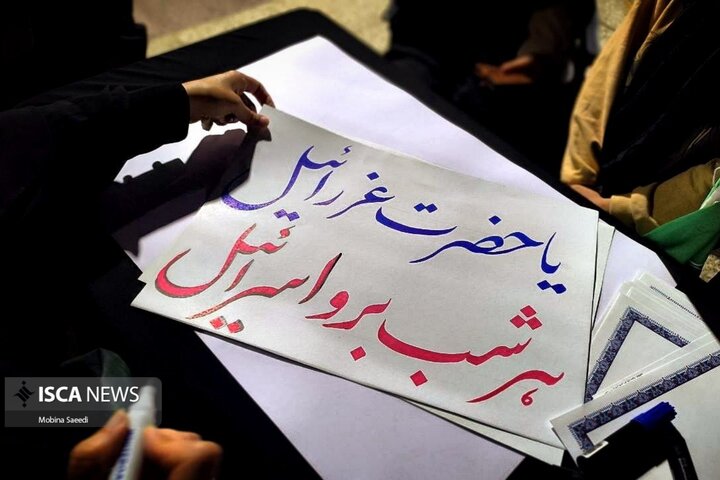 یا حضرت عزرائیل
هر شب برو اسرائیل
ISCA NEWS
Mobina Saeedi